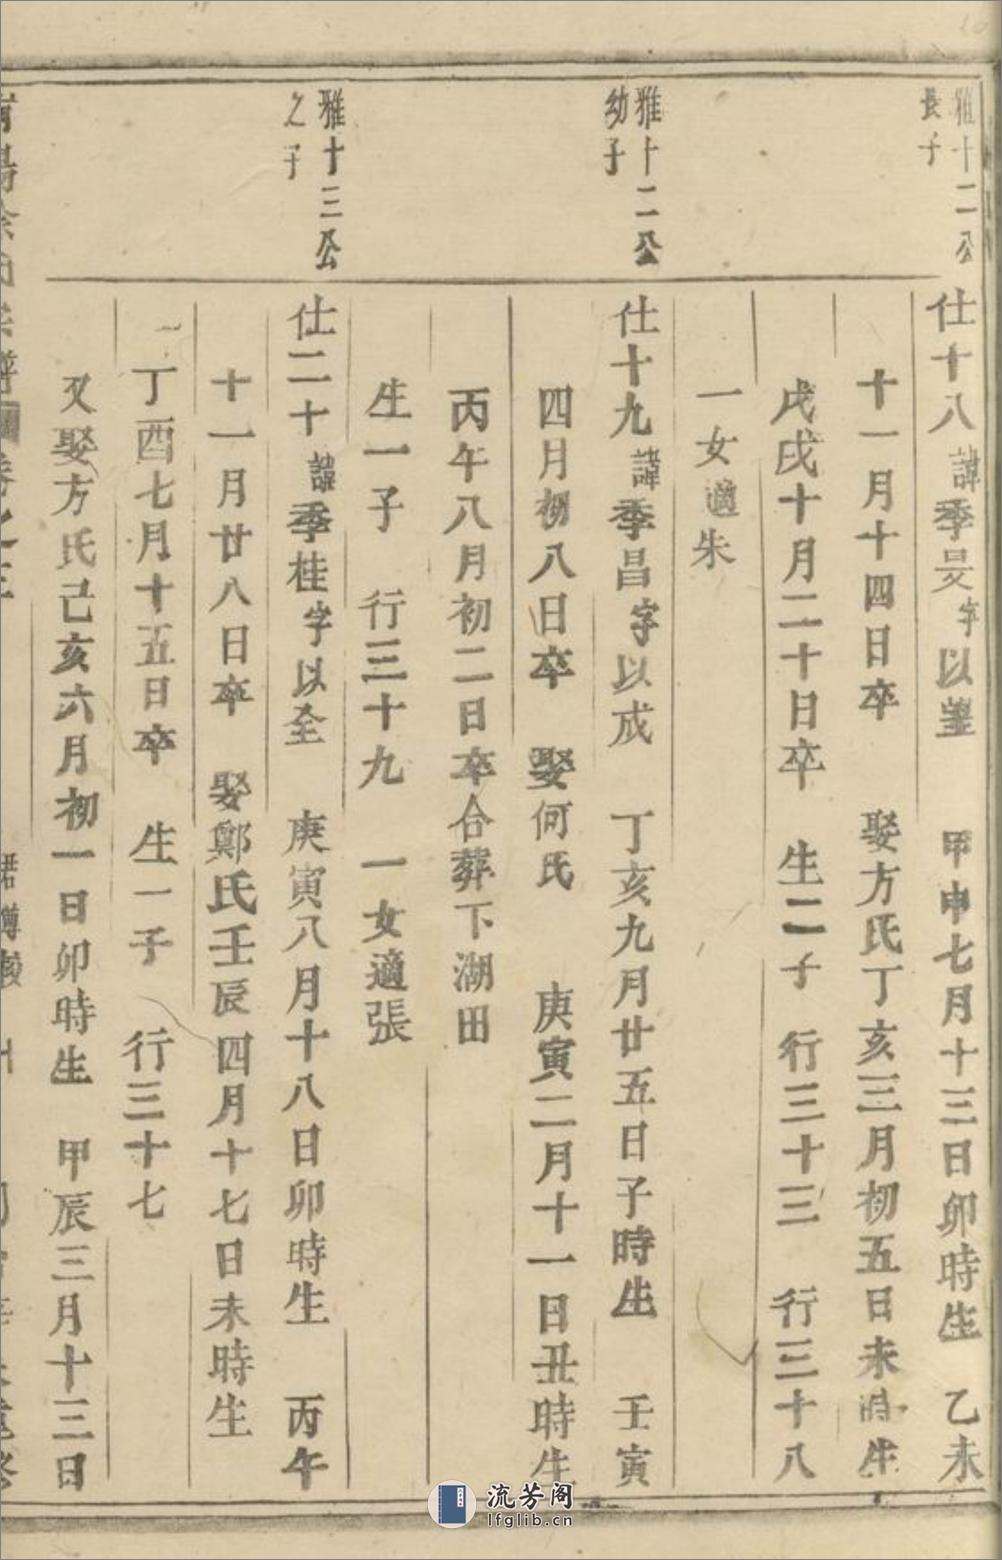 雅十二公
長子
仕十八諱季旻字以鑾 甲申七月十三日卯時生 乙未
十一月十四日卒 娶方氏丁亥三月初五日未時生
戊戌十月二十日卒 生二子 行三十三 行三十八
一女適朱
雅十二公
幼子
仕十九諱季昌字以成 丁亥九月廿五日子時生 壬寅
四月初八日卒 娶何氏 庚寅二月十一日丑時生
丙午八月初二日卒合葬下湖田
生一子 行三十九 一女適張
雅十三公
之子
仕二十諱季桂字以全 庚寅八月十八日卯時生 丙午
十一月廿八日卒 娶鄭氏壬辰四月十七日未時生
丁酉七月十五日卒 生一子 行三十七
又娶方氏己亥六月初一日卯時生 甲辰三月十三日
流芳阁
lfglib.cn